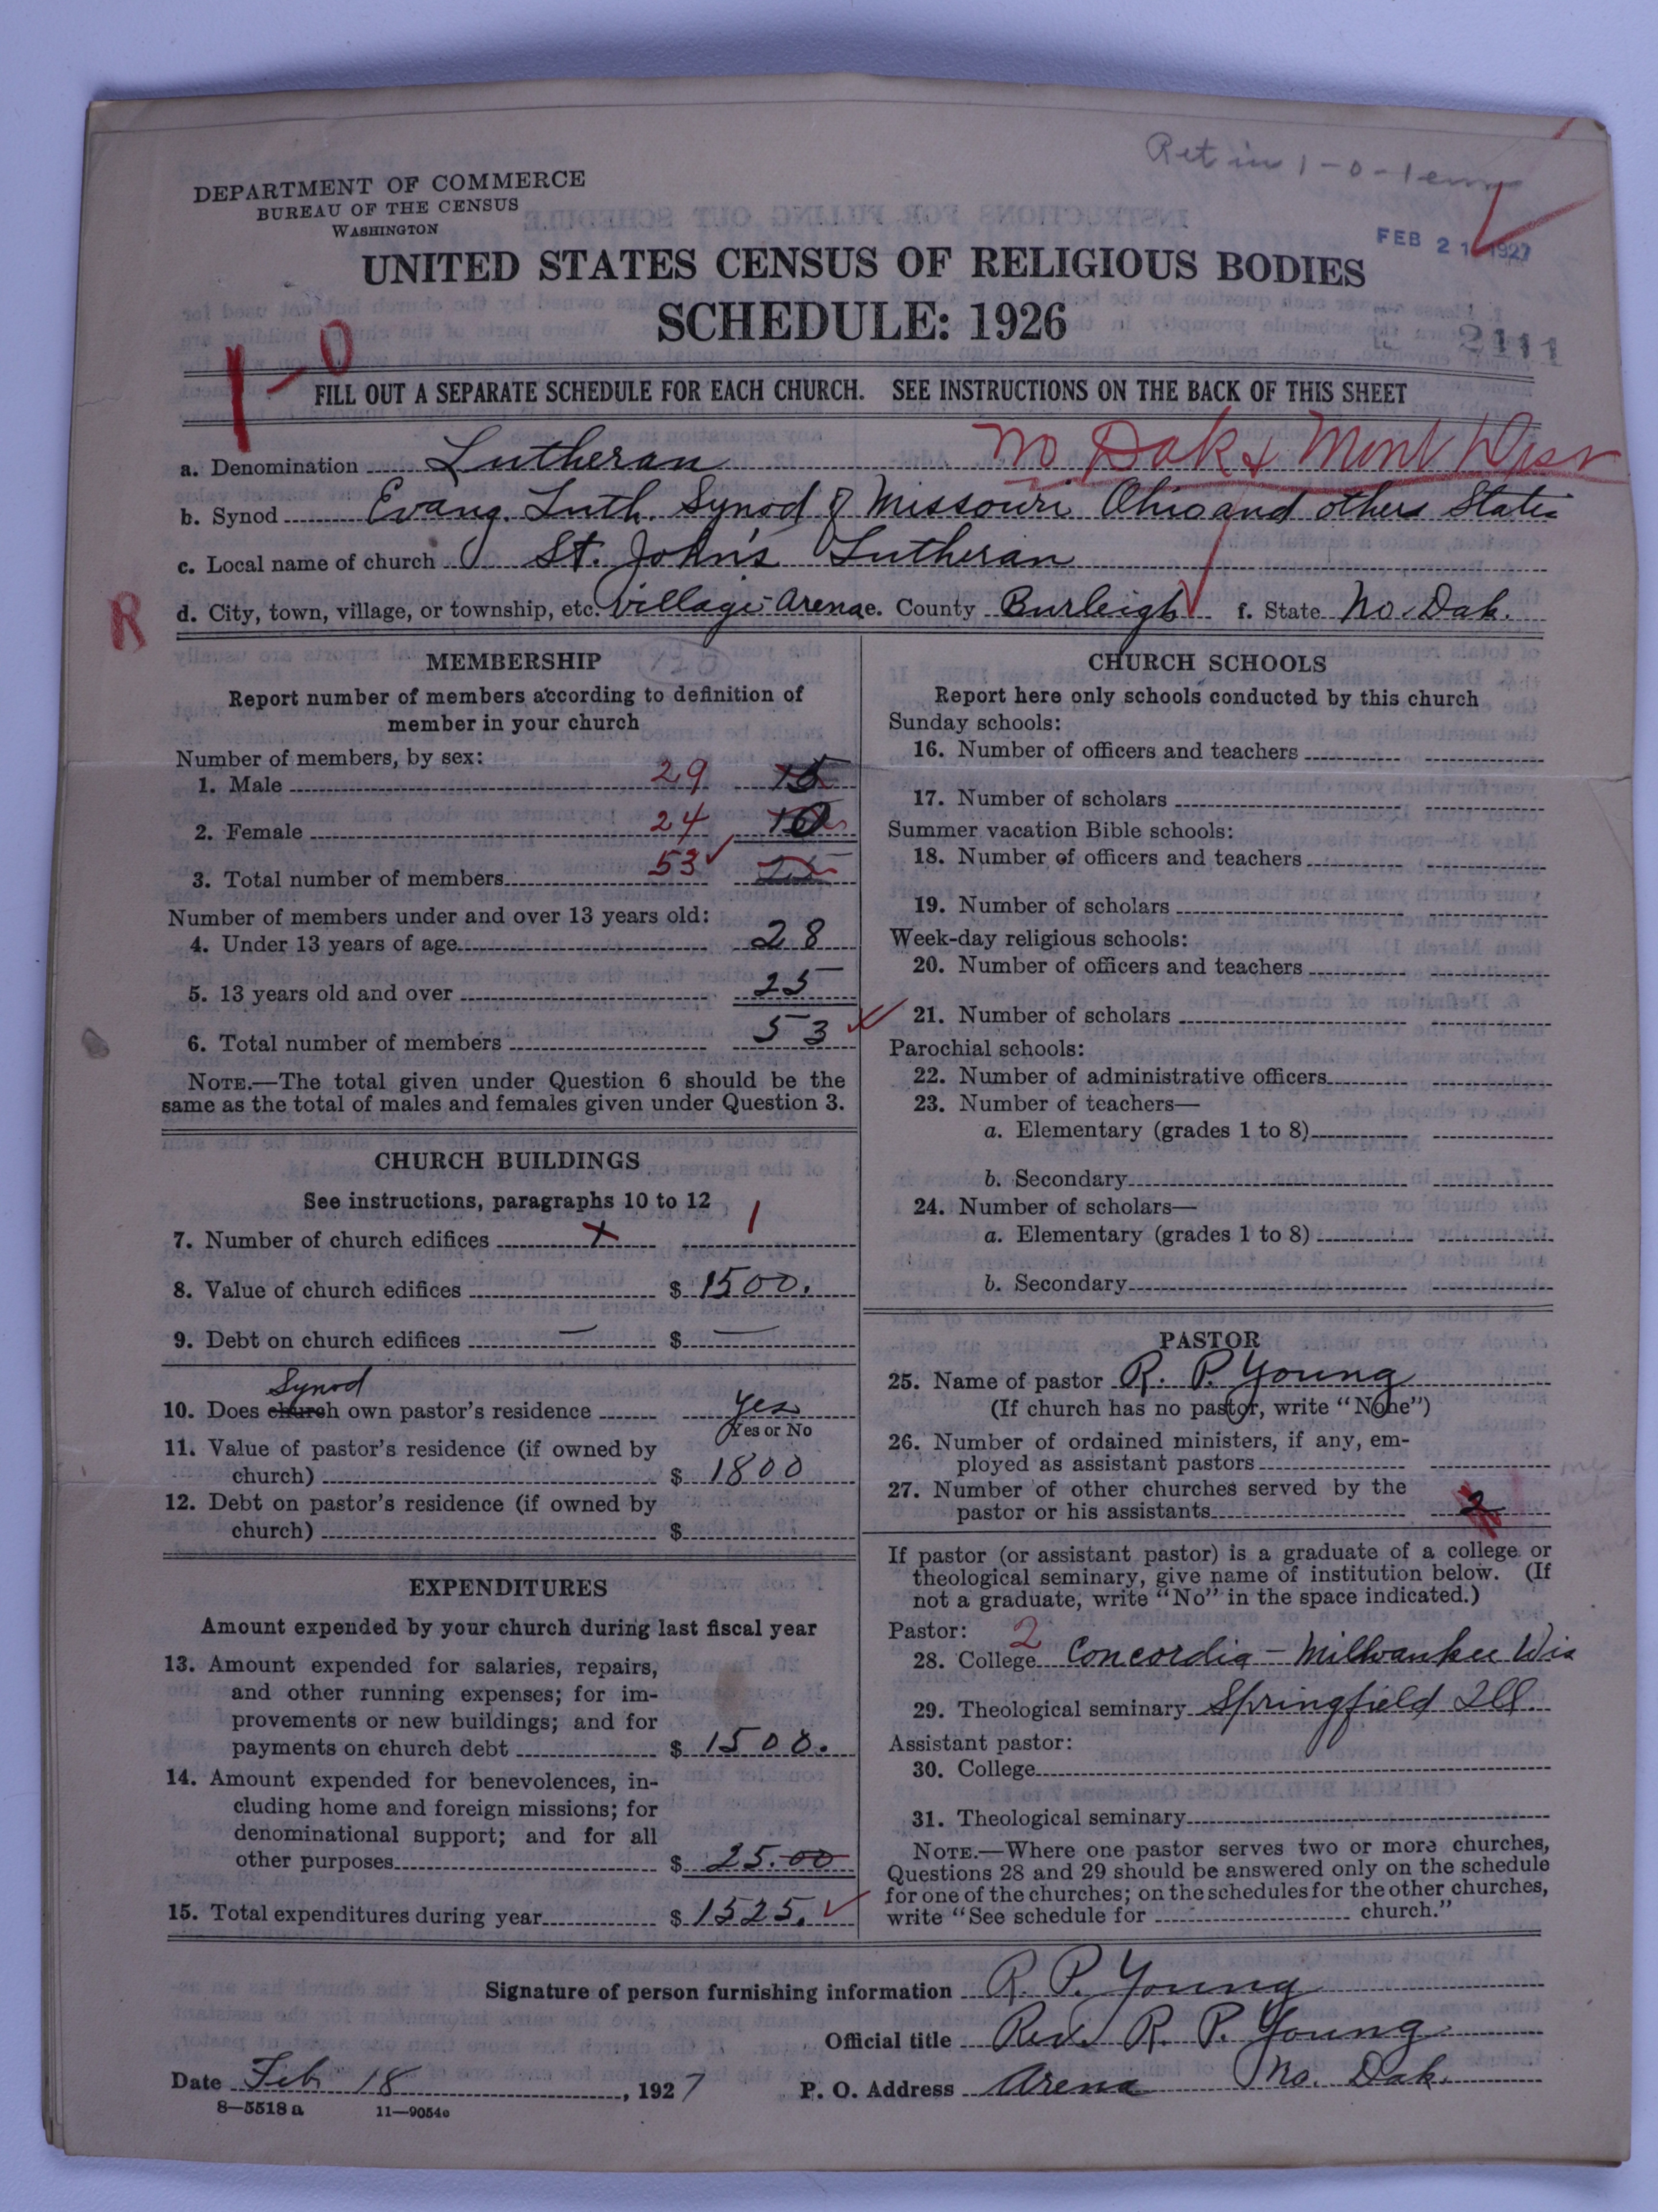 Ret in 1-0-1
DEPARTMENT OF COMMERCE
BUREAU OF THE CENSUS
WASHINGTON
FEB 21 1927
UNITED STATES CENSUS OF RELIGIOUS BODIES
SCHEDULE: 1926
2111
1-0
FILL OUT A SEPARATE SCHEDULE FOR EACH CHURCH. SEE INSTRUCTIONS ON THE BACK OF THIS SHEET
No Dak & Mont
a. Denomination Lutheran
b. Synod Evang. Luth. Synod of Missouri Ohio and others States
c. Local name of church St. John's Lutheran
R
d. City, town, village, or township, etc. Village-Arena e. County Burleigh f. State No. Dak.
MEMBERSHIP
Report number of members according to definition of
member in your church
Number of members, by sex:
1. Male 29 15
2. Female 24 10
3. Total number of members 53 25
Number of members under and over 13 years old:
4. Under 13 years of age 28
5. 13 years old and over 25
6. Total number of members 53
NOTE.—The total given under Question 6 should be the
same as the total of males and females given under Question 3.
CHURCH BUILDINGS
See instructions, paragraphs 10 to 12
7. Number of church edifices x 1
8. Value of church edifices $ 1500.
9. Debt on church edifices — $ —
Synod
10. Does church own pastor's residence Yes
Yes or No
11. Value of pastor's residence (if owned by
church) $ 1800
12. Debt on pastor's residence (if owned by
church) $
EXPENDITURES
Amount expended by your church during last fiscal year
13. Amount expended for salaries, repairs,
and other running expenses; for im-
provements or new buildings; and for
payments on church debt $ 1500.
14. Amount expended for benevolences, in-
cluding home and foreign missions; for
denominational support; and for all
other purposes $ 25.00
15. Total expenditures during year $ 1525.
CHURCH SCHOOLS
Report here only schools conducted by this church
Sunday schools:
16. Number of officers and teachers
17. Number of scholars
Summer vacation Bible schools:
18. Number of officers and teachers
19. Number of scholars
Week-day religious schools:
20. Number of officers and teachers
21. Number of scholars
Parochial schools:
22. Number of administrative officers
23. Number of teachers—
a. Elementary (grades 1 to 8)
b. Secondary
24. Number of scholars—
a. Elementary (grades 1 to 8)
b. Secondary
PASTOR
25. Name of pastor R. P. Young
(If church has no pastor, write "None")
26. Number of ordained ministers, if any, em-
ployed as assistant pastors
27. Number of other churches served by the
pastor or his assistants 2
If pastor (or assistant pastor) is a graduate of a college or
theological seminary, give name of institution below. (If
not a graduate, write "No" in the space indicated.)
Pastor: 2
28. College Concordia - Milwaukee Wis
29. Theological seminary Springfield Ill.
Assistant pastor:
30. College
31. Theological seminary
NOTE.—Where one pastor serves two or more churches,
Questions 28 and 29 should be answered only on the schedule
for one of the churches; on the schedules for the other churches,
write "See schedule for church."
Signature of person furnishing information R. P. Young
Official title Rev. R. P. Young
Date Feb 18, 1927 P. O. Address Arena No. Dak.
8—5518a 11—9054c